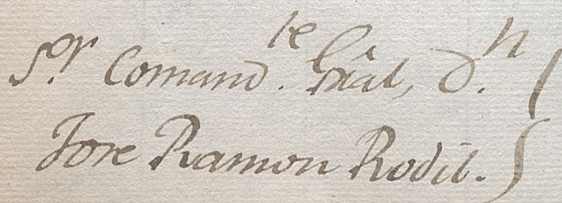 S.or Comand.te Gral, D.n
Jose Ramon Rodil.